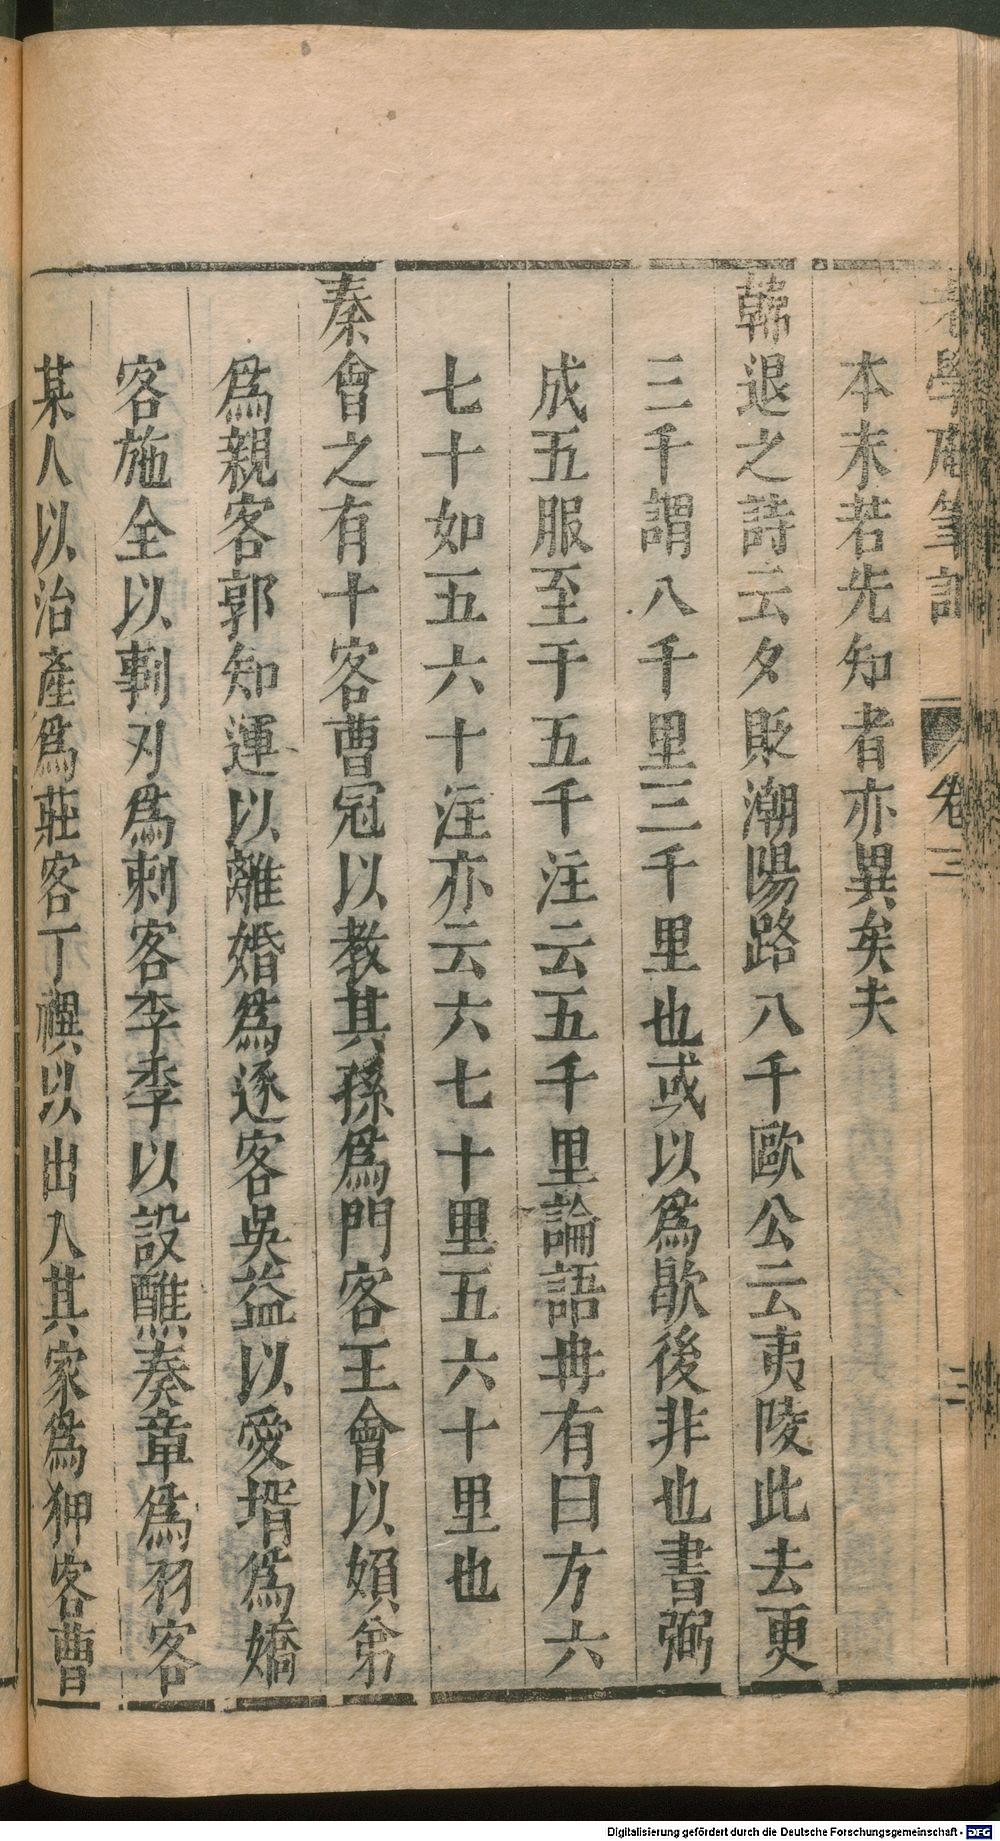 老學庵筆記 卷三 三
本末若先知者亦異矣夫
韓退之詩云夕貶潮陽路八千歐公云夷陵此去更
三千謂八千里三千里也或以爲歇後非也書弼
成五服至于五千注云五千里論語冉有曰方六
七十如五六十注亦云六七十里五六十里也
秦會之有十客曹冠以教其孫爲門客王會以婦弟
爲親客郭知運以離婚爲逐客吳益以愛壻爲嬌
客施全以剚刃爲刺客李季以設醮奏章爲羽客
某人以治產爲莊客丁禩以出入其家爲狎客曹
Digitalisierung gefördert durch die Deutsche Forschungsgemeinschaft - DFG